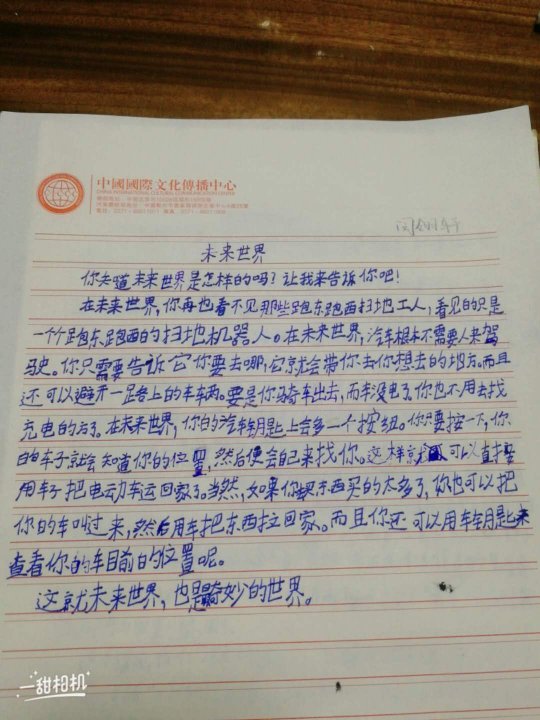 中國國際文化傳播中心
CHINA INTERNATIONAL CULTURAL COMMUNICATION CENTER
未来世界
你知道未来世界是怎样的吗?让我来告诉你吧!
在未来世界,你再也看不见那些跑东跑西扫地工人,看见的只是
一个个跑东跑西的扫地机器人。在未来世界,汽车根本不需要人来驾
驶。你只需要告诉它你要去哪,它就会带你去你想去的地方。而且
还可以避开一路上的车辆。要是你骑车出去,而车没电了你也不用去找
充电的了。在未来世界,你的汽车钥匙上会多一个按钮。你只要按一下,你
的车子就会知道你的位置,然后便会自己来找你。这样就可以直接
用车子把电动车运回家了。当然,如果你买东西买的太多了,你也可以把
你的车叫过来,然后用车把东西拉回家。而且你还可以用车钥匙来
查看你的车目前的位置呢。
这就未来世界,也是奇妙的世界。
一甜相机